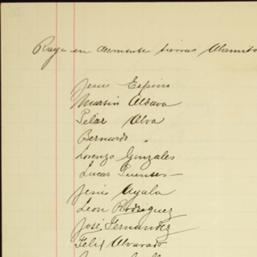 Raya en desmonte tierras Alamito
Jesus Espino
Martin Aldava
Pilar Alva
Bernardo "
Lorenzo Gonzales
Lucas Fuentes
Jesús Ayala
Leon Rodriguez
José Fernandez
Felix Alvarado